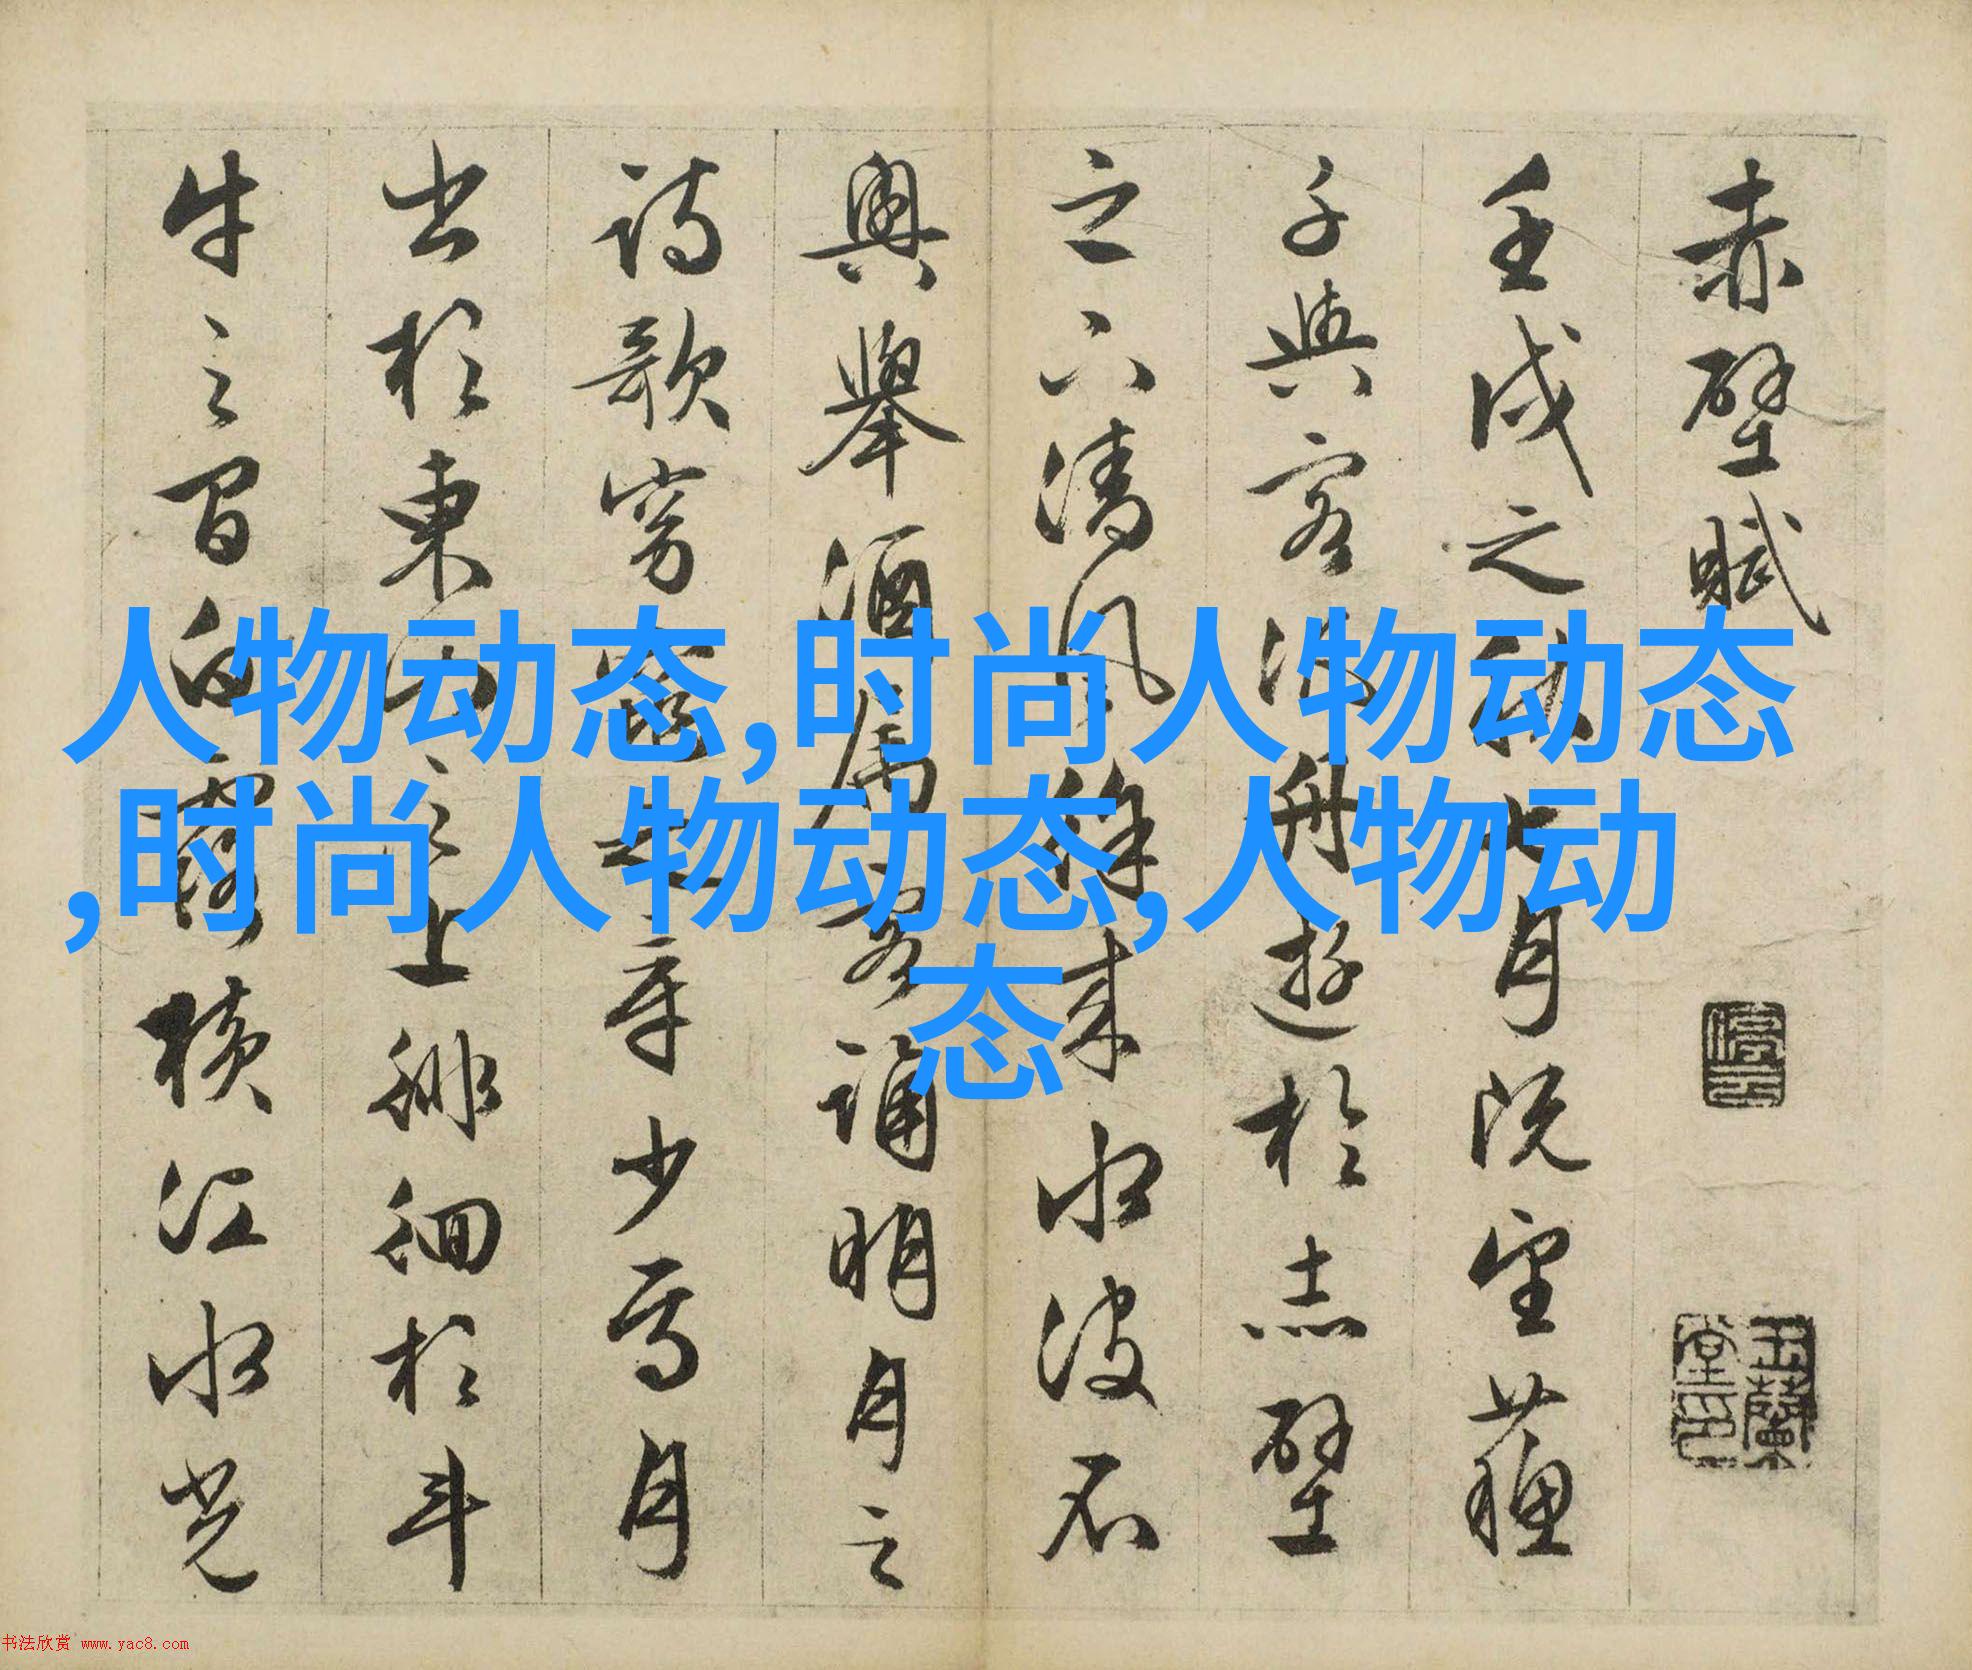 赤壁賦
壬戌之秋七月既望蘇
子與客泛舟遊於赤壁
之下清風徐来水波不
興舉酒属客誦明月之
詩歌窈窕之章少焉月
出於東山之上徘徊於斗
牛之間白露横江水光
停雲
玉蘭堂印
人物动态,时尚人物动态
,时尚人物动态,人物动
态
书法欣赏 www.yac8.com